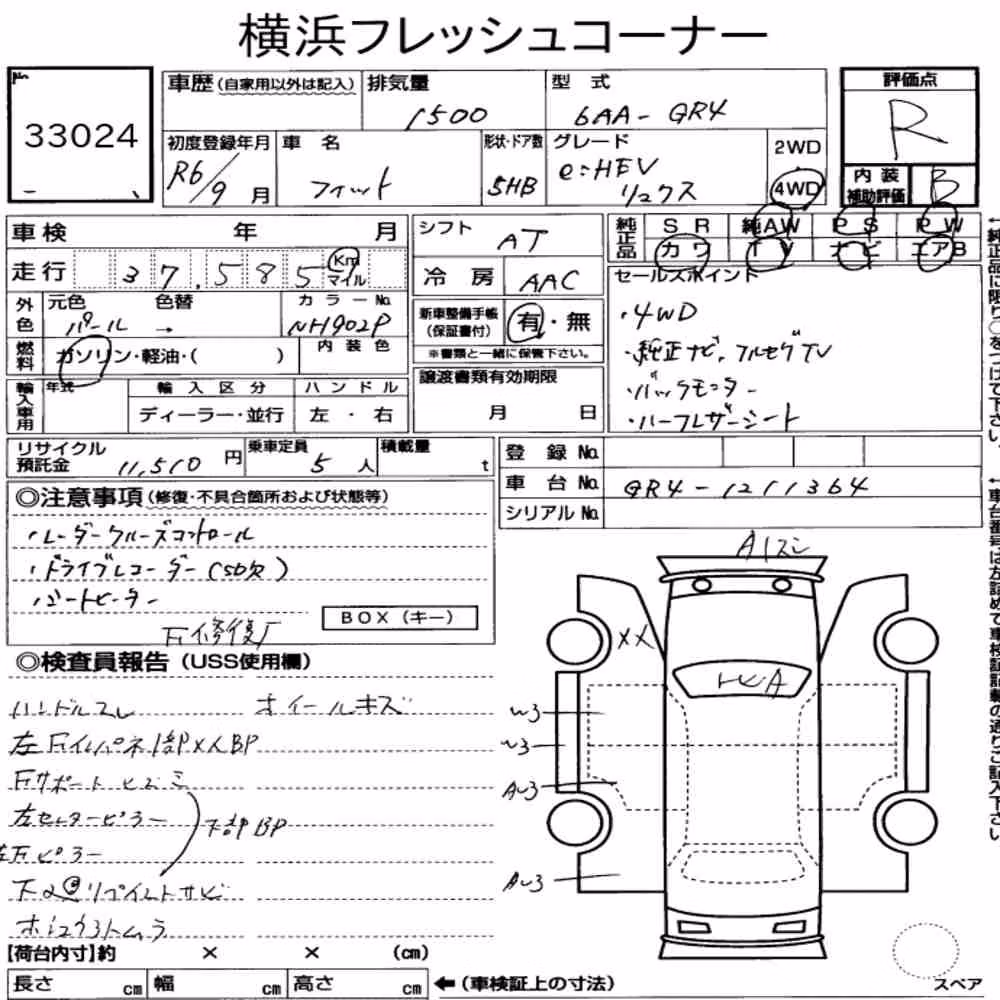 横浜フレッシュコーナー
No
33024
車歴(自家用以外は記入)
排気量
1500
型 式
6AA - GR4
評価点
R
初度登録年月
R6/9 月
車 名
フィット
形状・ドア数
5HB
グレード
e:HEV
リュクス
2WD
4WD
内 装
補助評価
B
車検 年 月
走行 37,585 Km
マイル
シフト AT
冷 房 AAC
純正品
S R 純AW P S P W
カワ TV ナビ エアB
セールスポイント
・4WD
・純正ナビ、フルセグTV
・バックモニター
・ハーフレザーシート
外色
元色 色替 カラーNo
パール → NH902P
燃料
ガソリン・軽油・( )
内 装 色
新車整備手帳
(保証書付)
有・無
※書類と一緒に保管下さい。
輸入車用
年式
輸 入 区 分
ハ ン ド ル
ディーラー・並行
左 ・ 右
譲渡書類有効期限
月 日
リサイクル
預託金 11,510 円
乗車定員
5 人
積載量
t
登 録 No
車 台 No GR4-1211364
シリアル No
◎注意事項(修復・不具合箇所および状態等)
・レーダークルーズコントロール
・ドライブレコーダー(SD欠)
・シートヒーター
BOX(キー)
◎検査員報告(USS使用欄)
ハンドルスレ ホイールキズ
BP
下部BP
【荷台内寸】約 × × (cm)
長さ cm 幅 cm 高さ cm
←(車検証上の寸法)
A1
XX
A
A
スペア
←純正品に限り○をつけて下さい。
←車台番号は左詰めで車検証記載の通りご記入下さい。